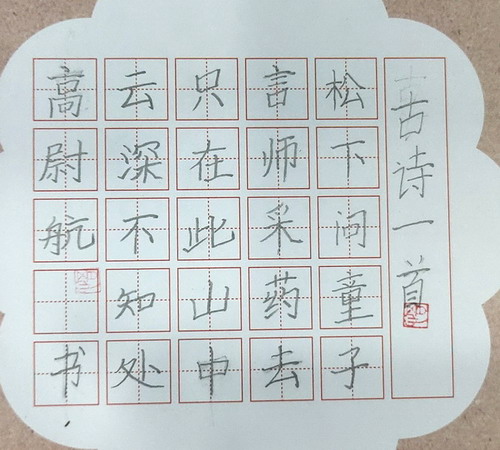 古诗一首
松下问童子
言师采药去
只在此山中
云深不知处
高尉航书